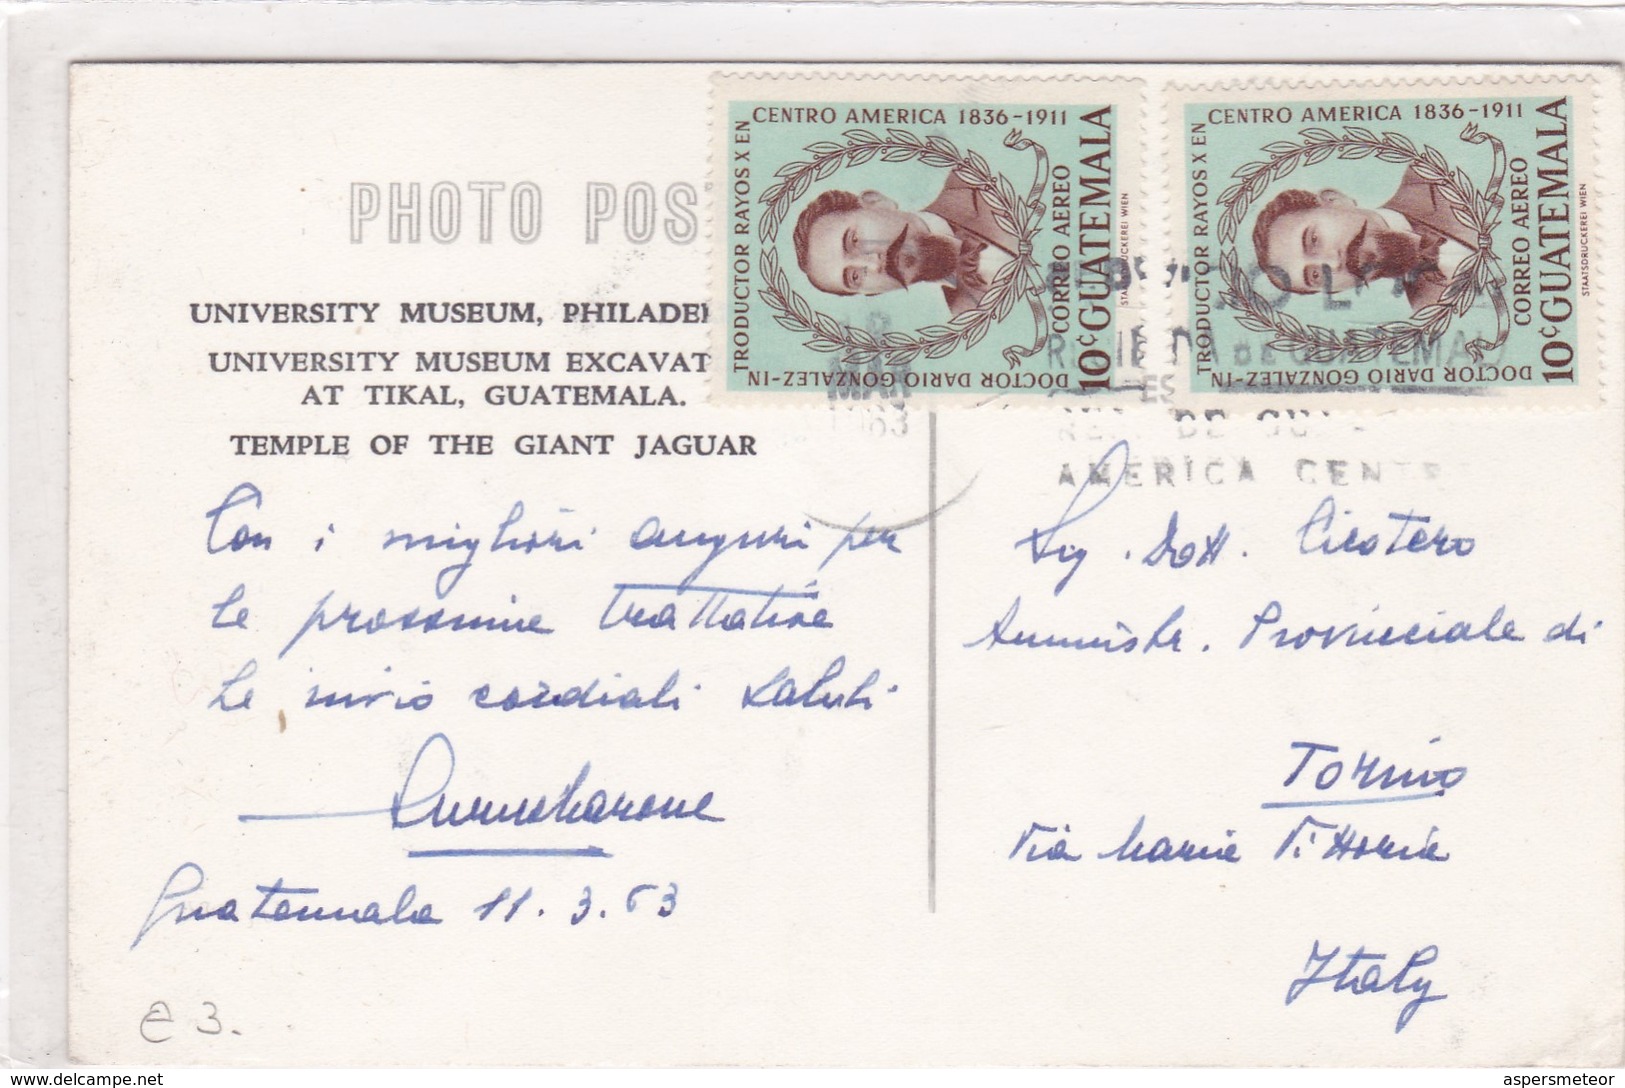 PHOTO POS
UNIVERSITY MUSEUM, PHILADE
UNIVERSITY MUSEUM EXCAVAT
AT TIKAL, GUATEMALA.
TEMPLE OF THE GIANT JAGUAR
Con i migliori auguri per
le prossime trattative
Le invio cordiali saluti
Guatemala 11.3.63
e 3.
CENTRO AMERICA 1836-1911
TRODUCTOR RAYOS X EN
DOCTOR DARIO GONZALEZ-IN
CORREO AEREO
10¢ GUATEMALA
STAATSDRUCKEREI WIEN
CENTRO AMERICA 1836-1911
TRODUCTOR RAYOS X EN
DOCTOR DARIO GONZALEZ-IN
CORREO AEREO
10¢ GUATEMALA
STAATSDRUCKEREI WIEN
MAR
DE GUATEMALA
AMERICA CENT
Sig. Dott. Cicotero
Amministr. Provinciale di
Torino
Via Maria Vittoria
Italy
delcampe.net
aspersmeteor